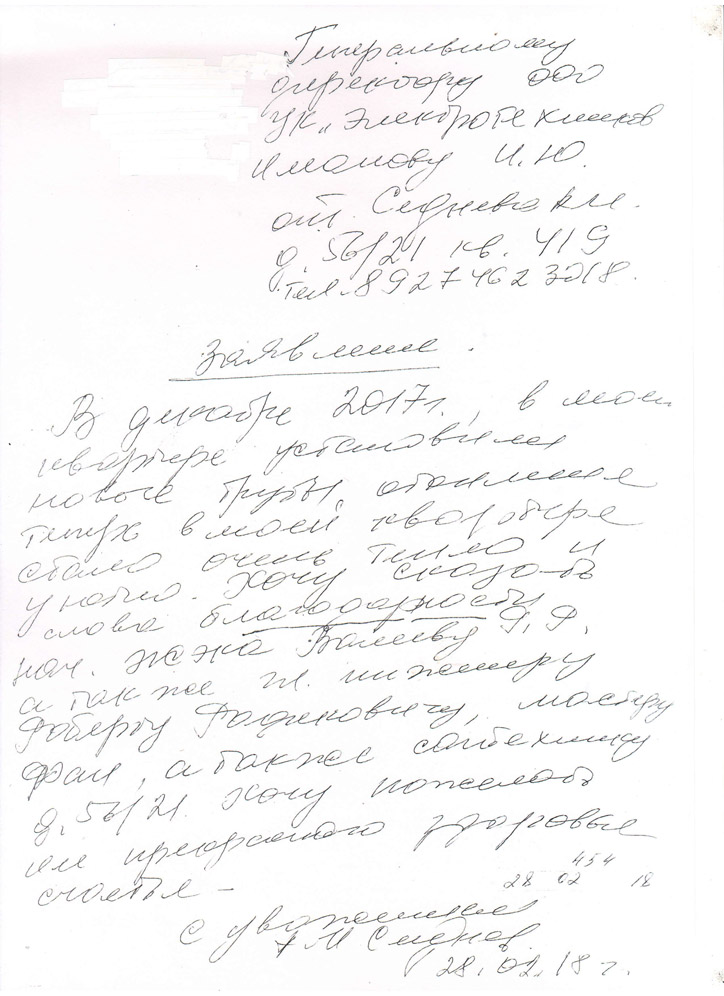 Генеральному
директору ООО
УК „Электротехников
Иманову И.Ю.
от Седнева
д. 56/21 кв. 419
тел. 89274623018.
Заявление.
В декабре 2017г., в моей
квартире установили
новые трубы, отопления
теперь в моей квартире
стало очень тепло и
уютно. Хочу сказать
слова благодарности
нач. жэка Валиеву Ф.Ф.
а так же гл. инженеру
Роберту Рафиковичу, мастеру
а также сантехнику
д. 56/21. Хочу пожелать
им прекрасного здоровья
счастья –
454
28 02 18
С уважением
28.02.18 г.